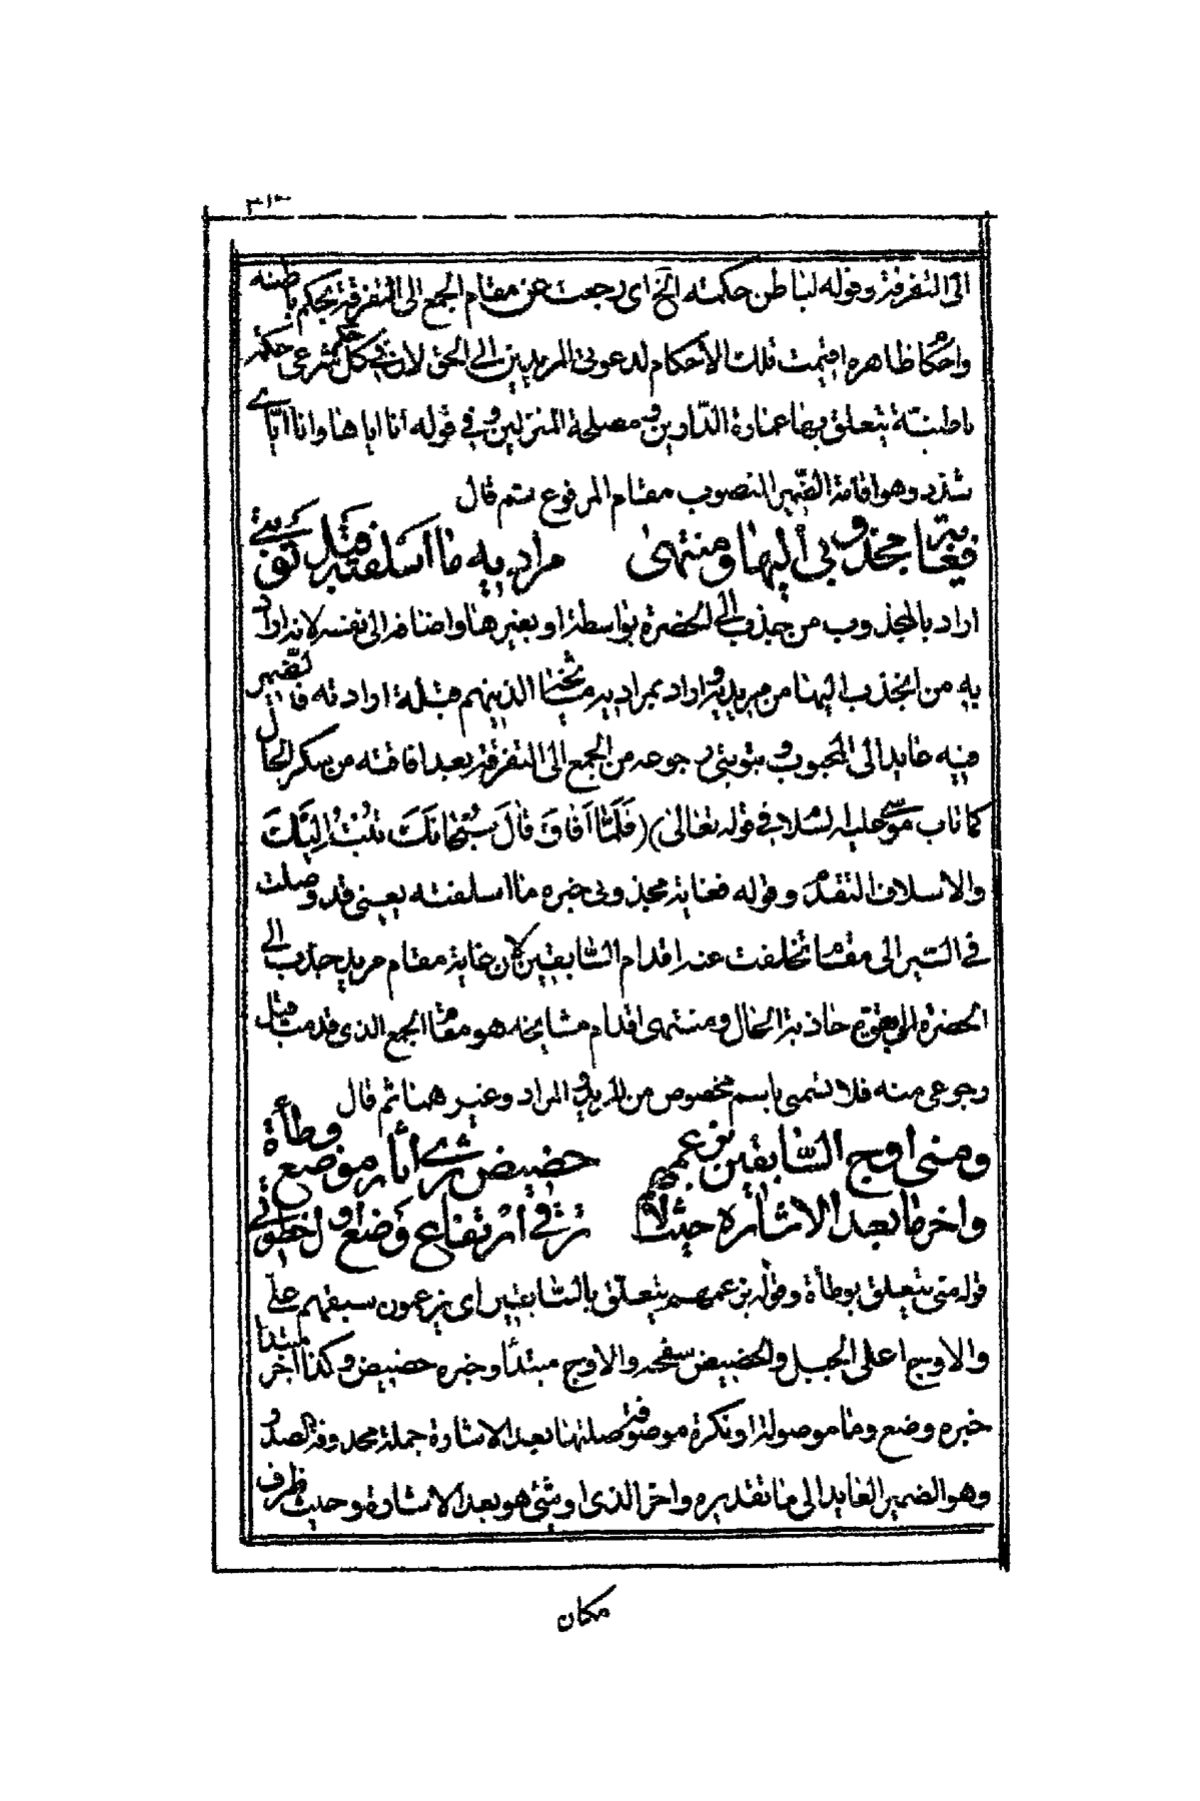 الى التفرقة وقوله لباطن حكمته الخ اى رجعت عن مقام الجمع الى التفرقة بحكم باطنه
واحكام ظاهره اقيمت تلك الأحكام لدعوتى المريدين الى الحق لان فى كل حكم شرعى حكمة
باطنة يتعلق بها عمارة الدارين ومصلحة المنزلين وفى قوله أنا اياها وانا اياى
شذوذ وهو اقامة الضمير المنصوب مقام المرفوع ثم قال
فغاية مجذوبى اليها ومنتهى مراديه ما اسلفته قبل توبتى
اراد بالمجذوب من جذب الى الحضرة بواسطة او بغيرها واضافه الى نفسه لانه اراد
به من انجذب اليها من مريديه واراد بمراديه مشايخنا الذين هم قبلة ارادته فالضمير
فيه عايد الى المحبوب وبتوبتى رجوعه من الجمع الى التفرقة بعد افاقته من سكر الحال
كما تاب موسى عليه السلام فى قوله تعالى (فَلَمَّا أَفَاقَ قَالَ سُبْحَانَكَ تُبْتُ إِلَيْكَ
والاسلاف التقدم وقوله فغاية مجذوبى خبره ما اسلفته يعنى قد وصلت
فى السير الى مقام تخلفت عنه اقدام السابقين لان غاية مقام مريد جذب الى
الحضرة الى بقوة جاذبة الحال ومنتهى اقدام مشايخه هو مقام الجمع الذى قدمت قبل
رجوعى منه فلا تسمى باسم مخصوص من المريد والمراد وغيرهما ثم قال
ومنى اوج السابقين بزعمهم حضيض ثرى آثار موضع وطأة
واخر ما بعد الاشارة حيث لا ترقى ارتفاع وضع اول خطوتى
قوله منى يتعلق بوطأة وقوله بزعمهم يتعلق بالسابقين اى يزعمون سبقهم على
والاوج اعلى الجبل والحضيض سفحه والاوج مبتدأ وخبره حضيض وكذا اخر مبتدا
خبره وضع وما موصولة او نكرة موصوفة صلتها بعد الاشارة جملة محذوفة الصدر
وهو الضمير العايد الى ما تقديره واخر الذى او شئ هو بعد الاشارة وحيث ظرف
مكان